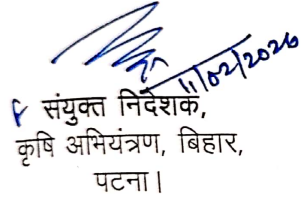 11/02/2026
संयुक्त निदेशक,
कृषि अभियंत्रण, बिहार,
पटना।